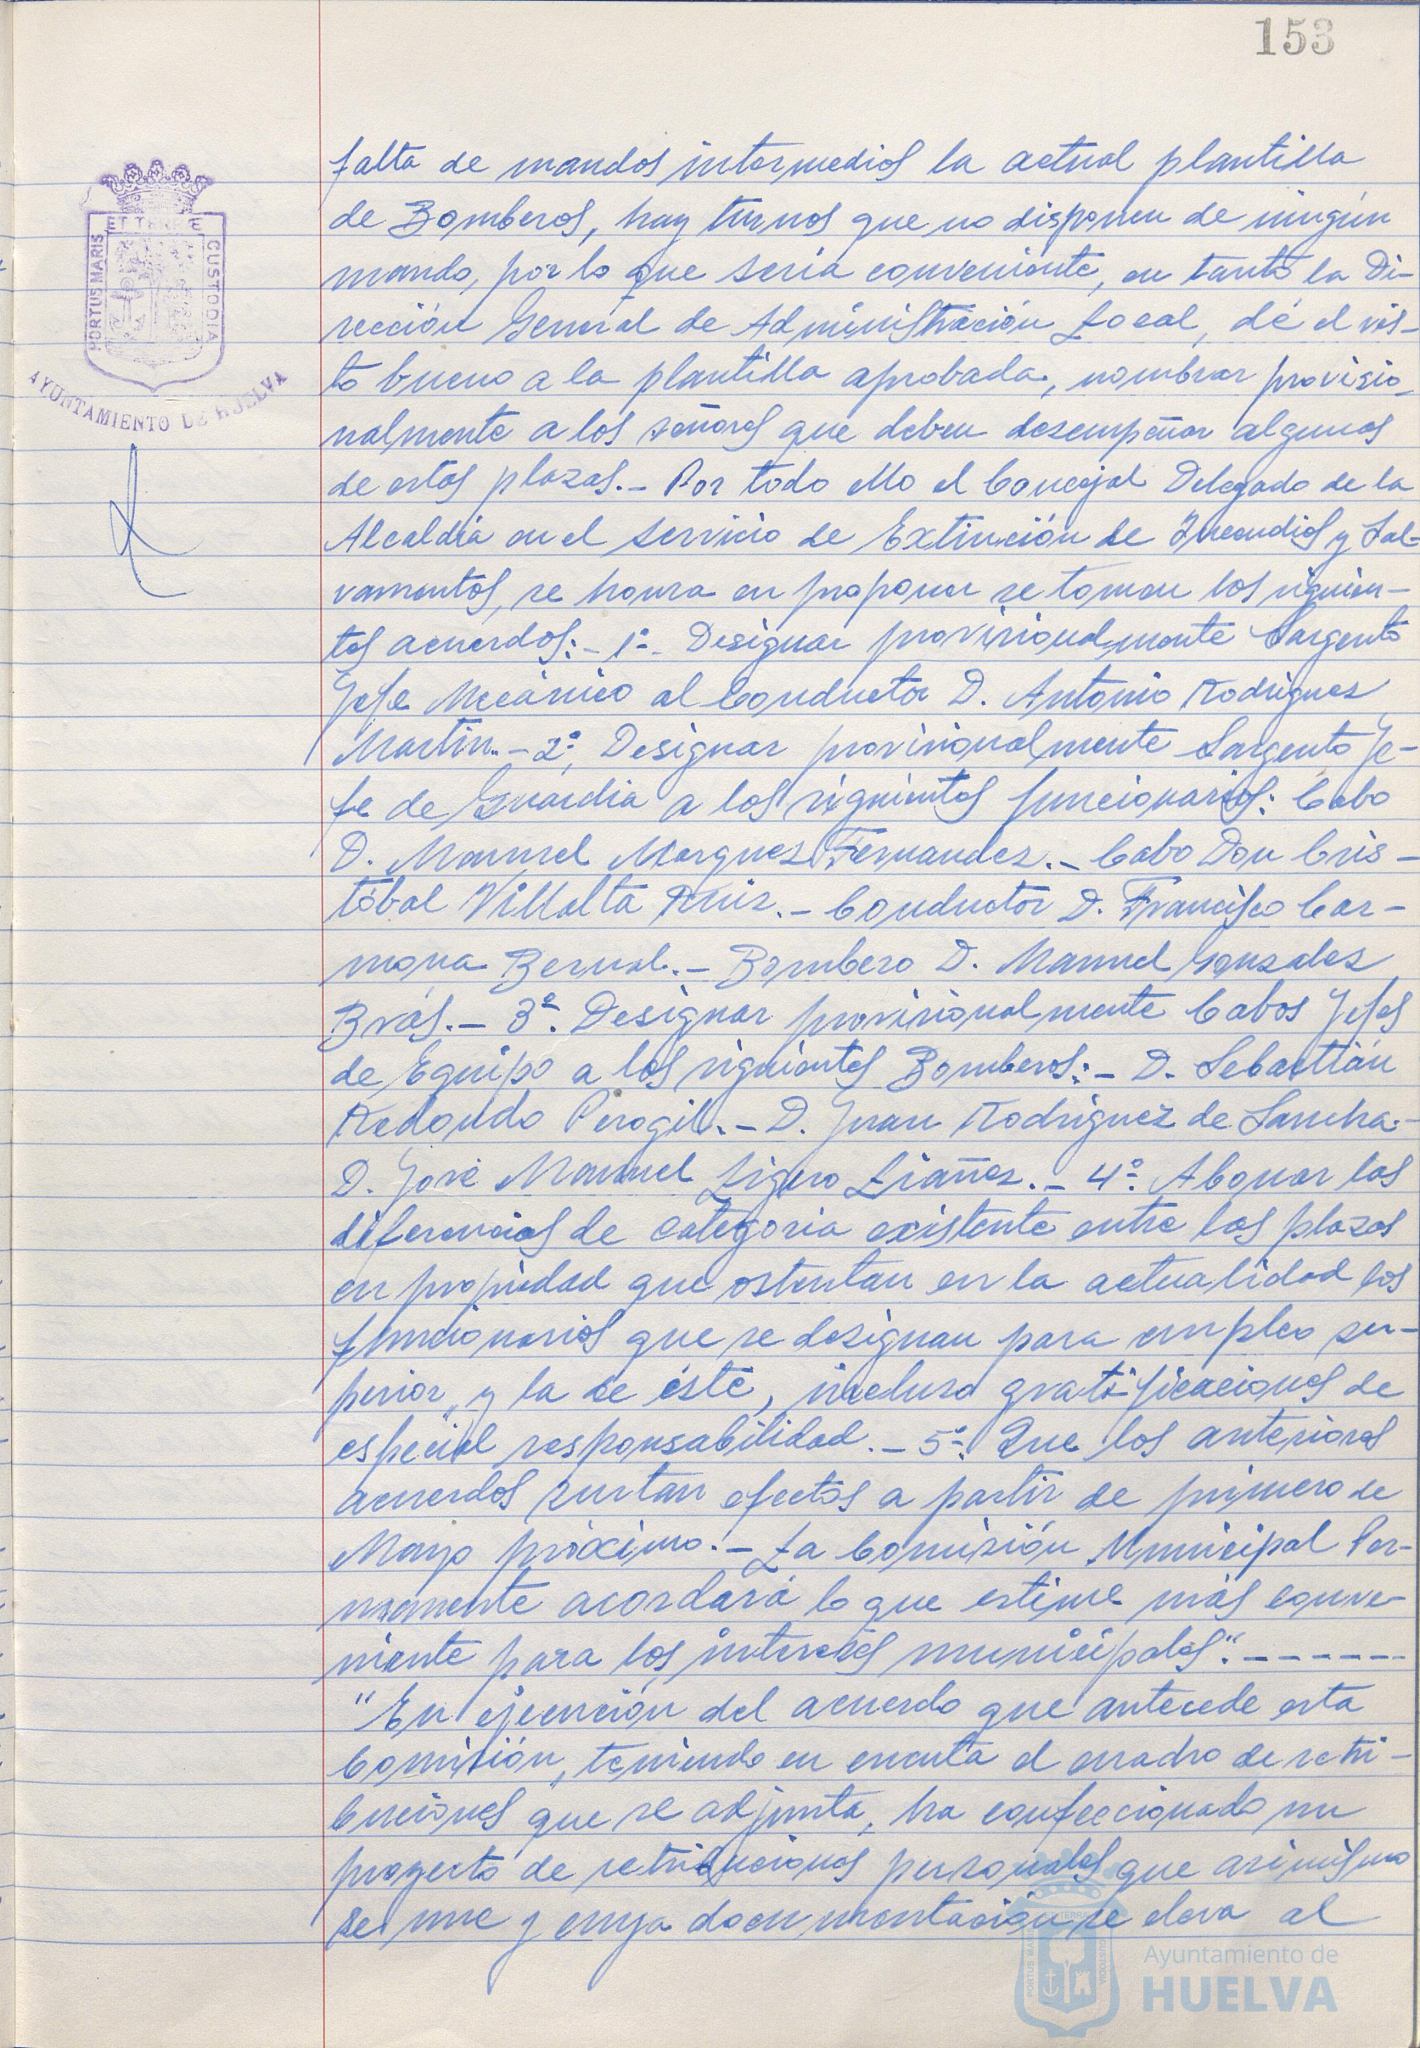 153
falta de mandos intermedios la actual plantilla
de Bomberos, hay turnos que no disponen de ningún
mando, por lo que seria conveniente, en tanto la Di-
rección General de Administración Local, dé el vis-
to bueno a la plantilla aprobada, nombrar provisio-
nalmente a los señores que deben desempeñar algunas
de estas plazas.- Por todo ello el Concejal Delegado de la
Alcaldía en el Servicio de Extinción de Incendios y Sal-
vamentos, se honra en proponer se tomen los siguien-
tes acuerdos:- 1º. Designar provisionalmente Sargento
Jefe Mecánico al Conductor D. Antonio Rodríguez
Martín.- 2º. Designar provisionalmente Sargento Je-
fe de Guardia a los siguientes funcionarios: Cabo
D. Manuel Marquez Fernandez.- Cabo Don Cris-
tóbal Villalta Ruiz.- Conductor D. Francisco Car-
mona Bernal.- Bombero D. Manuel Gonzalez
Brás.- 3º. Designar provisionalmente Cabos Jefes
de Equipo a los siguientes Bomberos:- D. Sebastián
Redondo Perogil.- D. Juan Rodríguez de Sancha.-
D. José Manuel Ligero Liañez.- 4º. Abonar las
diferencias de categoria existente entre las plazas
en propiedad que ostentan en la actualidad los
funcionarios que se designan para empleo su-
perior, y la de éste, incluso gratificaciones de
especial responsabilidad.- 5º. Que los anteriores
acuerdos surtan efectos a partir de primero de
Mayo próximo.- La Comisión Municipal Per-
manente acordará lo que estime más conve-
niente para los intereses municipales".- - - - - -
"En ejecución del acuerdo que antecede esta
Comisión, teniendo en cuenta el cuadro de retri-
buciones que se adjunta, ha confeccionado un
proyecto de retribuciones personales que asimismo
se une y cuya documentación se eleva al
PORTUS MARIS
CUSTODIA
AYUNTAMIENTO DE HUELVA
Ayuntamiento de
HUELVA